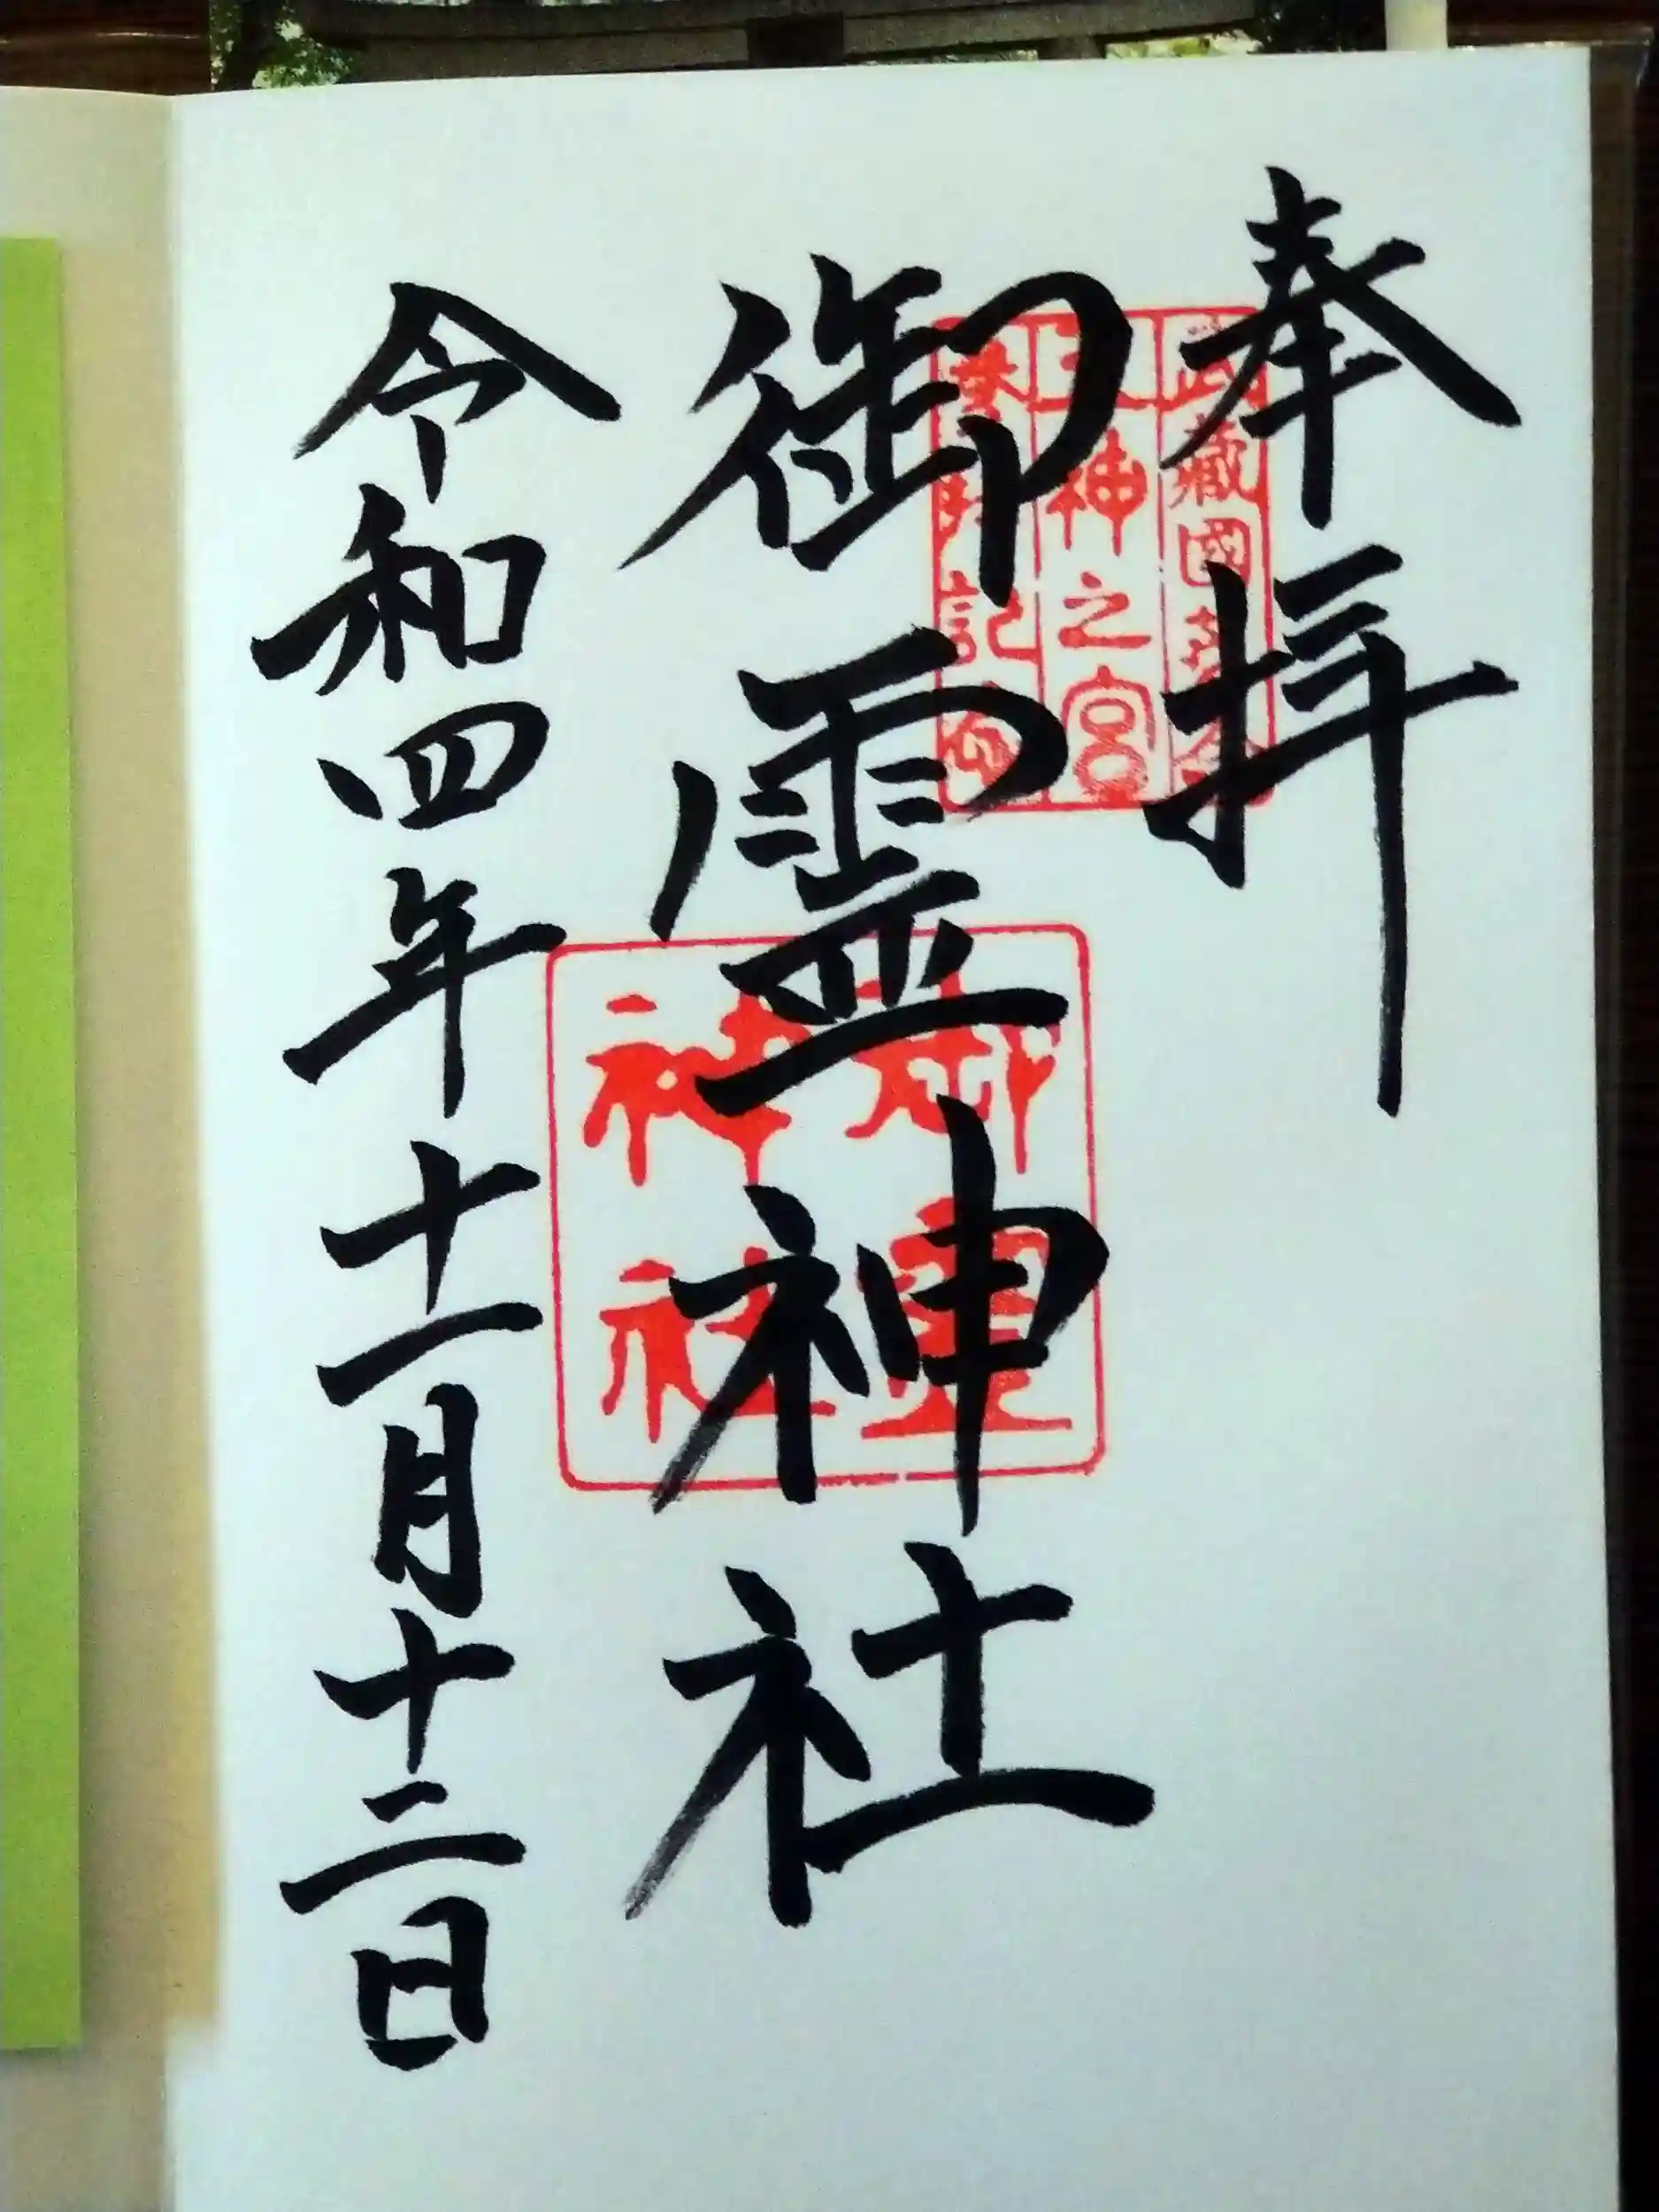 奉拝
御霊神社
令和四年十一月十二日
神之宮
御霊
神社